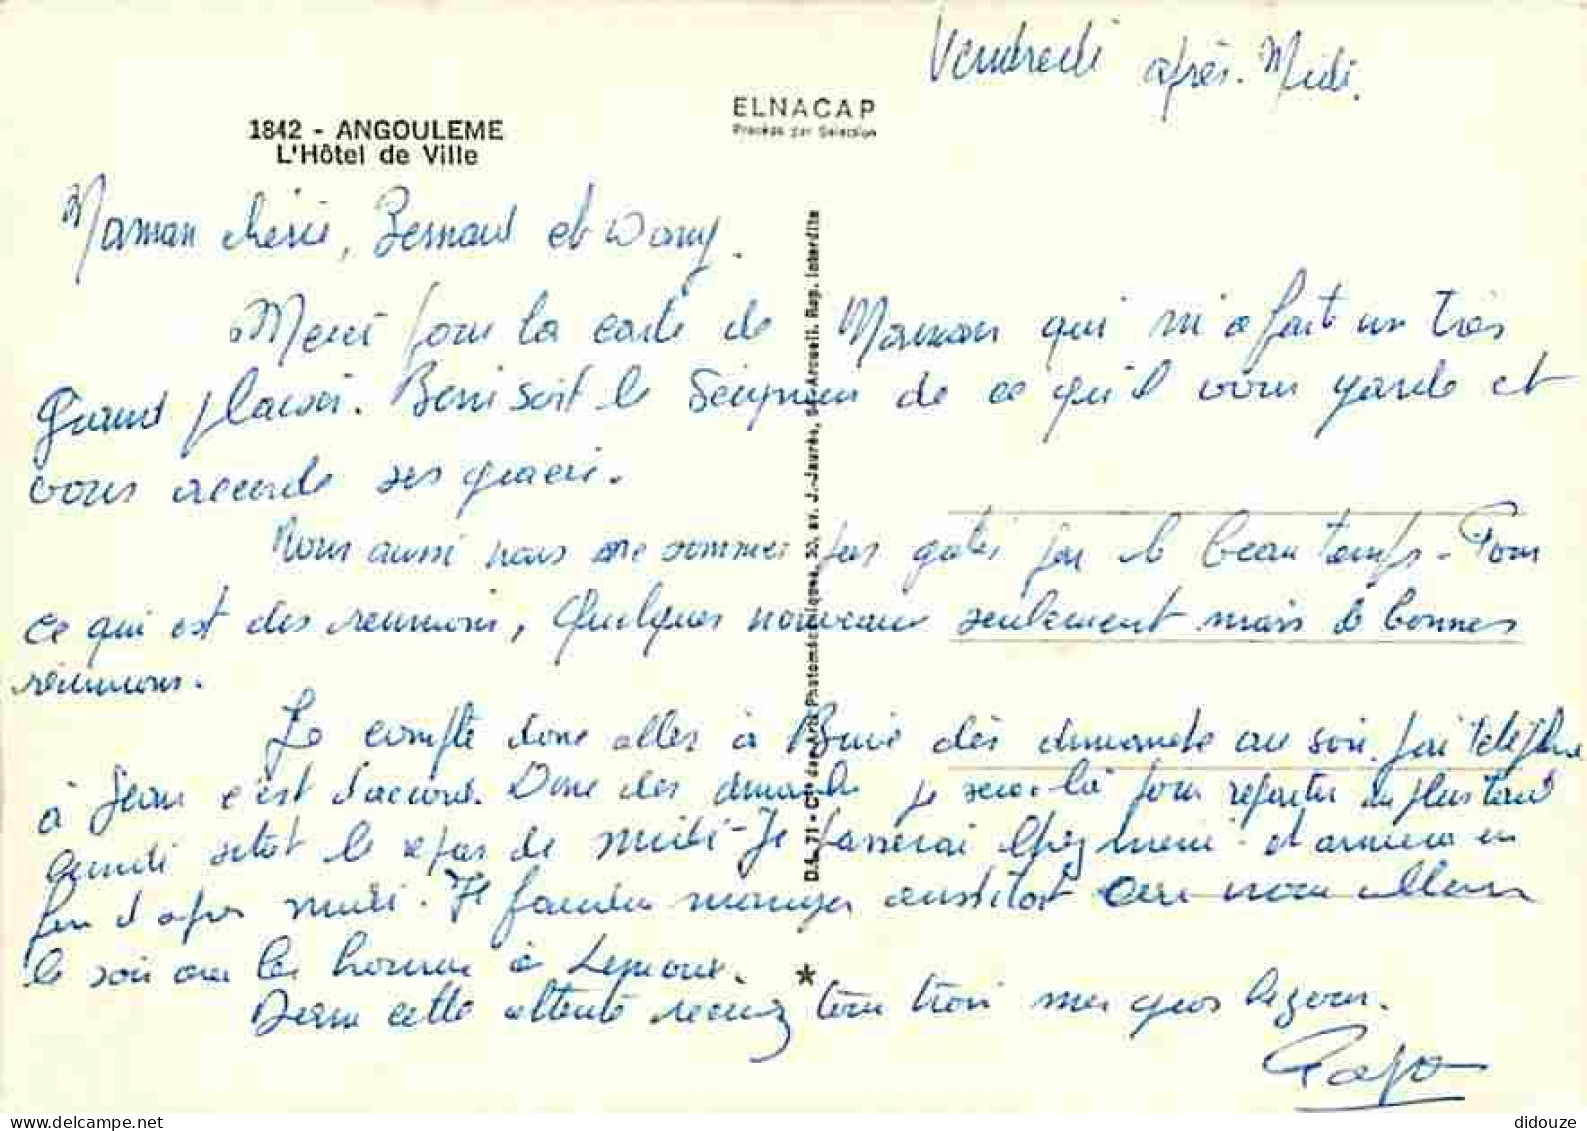 Vendredi après-Midi.
ELNACAP
Procédé par Sélection
1842 - ANGOULEME
L'Hôtel de Ville
Maman chérie, Bernard et Dany.
Merci pour la carte de Maman qui m'a fait un très
Grand plaisir. Beni soit le Seigneur de ce qu'il vous garde et
vous accorde ses graces.
Nous aussi nous ne sommes pas gatés par le beau temps - Pour
ce qui est des reunions, Quelques nouveaux seulement mais de bonnes
réunions.
Je compte donc aller à Brive dès dimanche au soir. J'ai téléphoné
à Jean c'est d'accord. Donc dès dimanche je serai là pour repartir au plus tard
Lundi sitôt le repas de midi - Je passerai et arriverai en
fin d'après midi. Je faudra manger aussitôt car nous allons
le soir à la
Dans cette attente recevez tous trois mes gros bezous.
Papo
D.L. 71 - Cie des Arts Photomécaniques, 30, av. J.-Jaurès, -Arcueil. Rep. Interdite
*
didouze